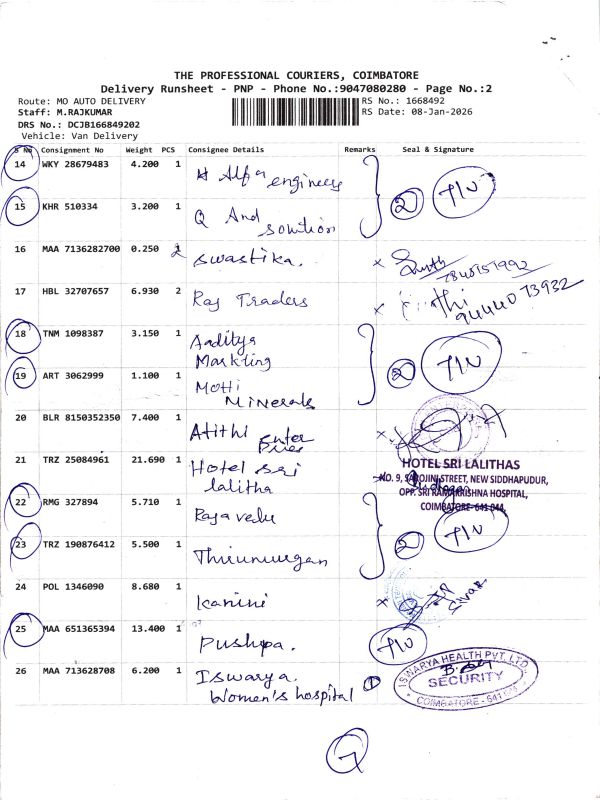 THE PROFESSIONAL COURIERS, COIMBATORE
Delivery Runsheet - PNP - Phone No.:9047080280 - Page No.:2
Route: MO AUTO DELIVERY
Staff: M.RAJKUMAR
DRS No.: DCJB166849202
Vehicle: Van Delivery
RS No.: 1668492
RS Date: 08-Jan-2026
S No Consignment No Weight PCS Consignee Details Remarks Seal & Signature
14 WKY 28679483 4.200 1 Alfa engineers
15 KHR 510334 3.200 1 Q And solution
2 P/N
16 MAA 7136282700 0.250 1 Swastika. x
17 HBL 32707657 6.930 2 Raj Traders x 9444073932
18 TNM 1098387 3.150 1 Aaditya Markting
19 ART 3062999 1.100 1 Motti Minerals
2 P/N
20 BLR 8150352350 7.400 1 Atithi enter Prises x
21 TRZ 25084961 21.690 1 Hotel sri lalitha
HOTEL SRI LALITHAS
NO. 9, SAROJINI STREET, NEW SIDDHAPUDUR,
OPP. SRI RAMAKRISHNA HOSPITAL,
COIMBATORE-641 044.
22 RMG 327894 5.710 1 Rajavelu
23 TRZ 190876412 5.500 1 Thirumurgan
2 P/N
24 POL 1346090 8.680 1 Kanini x
25 MAA 651365394 13.400 1 Pushpa. P/N
26 MAA 713628708 6.200 1 Iswarya. Women's hospital 1
ISWARYA HEALTH PVT. LTD.
SECURITY
COIMBATORE - 641
7